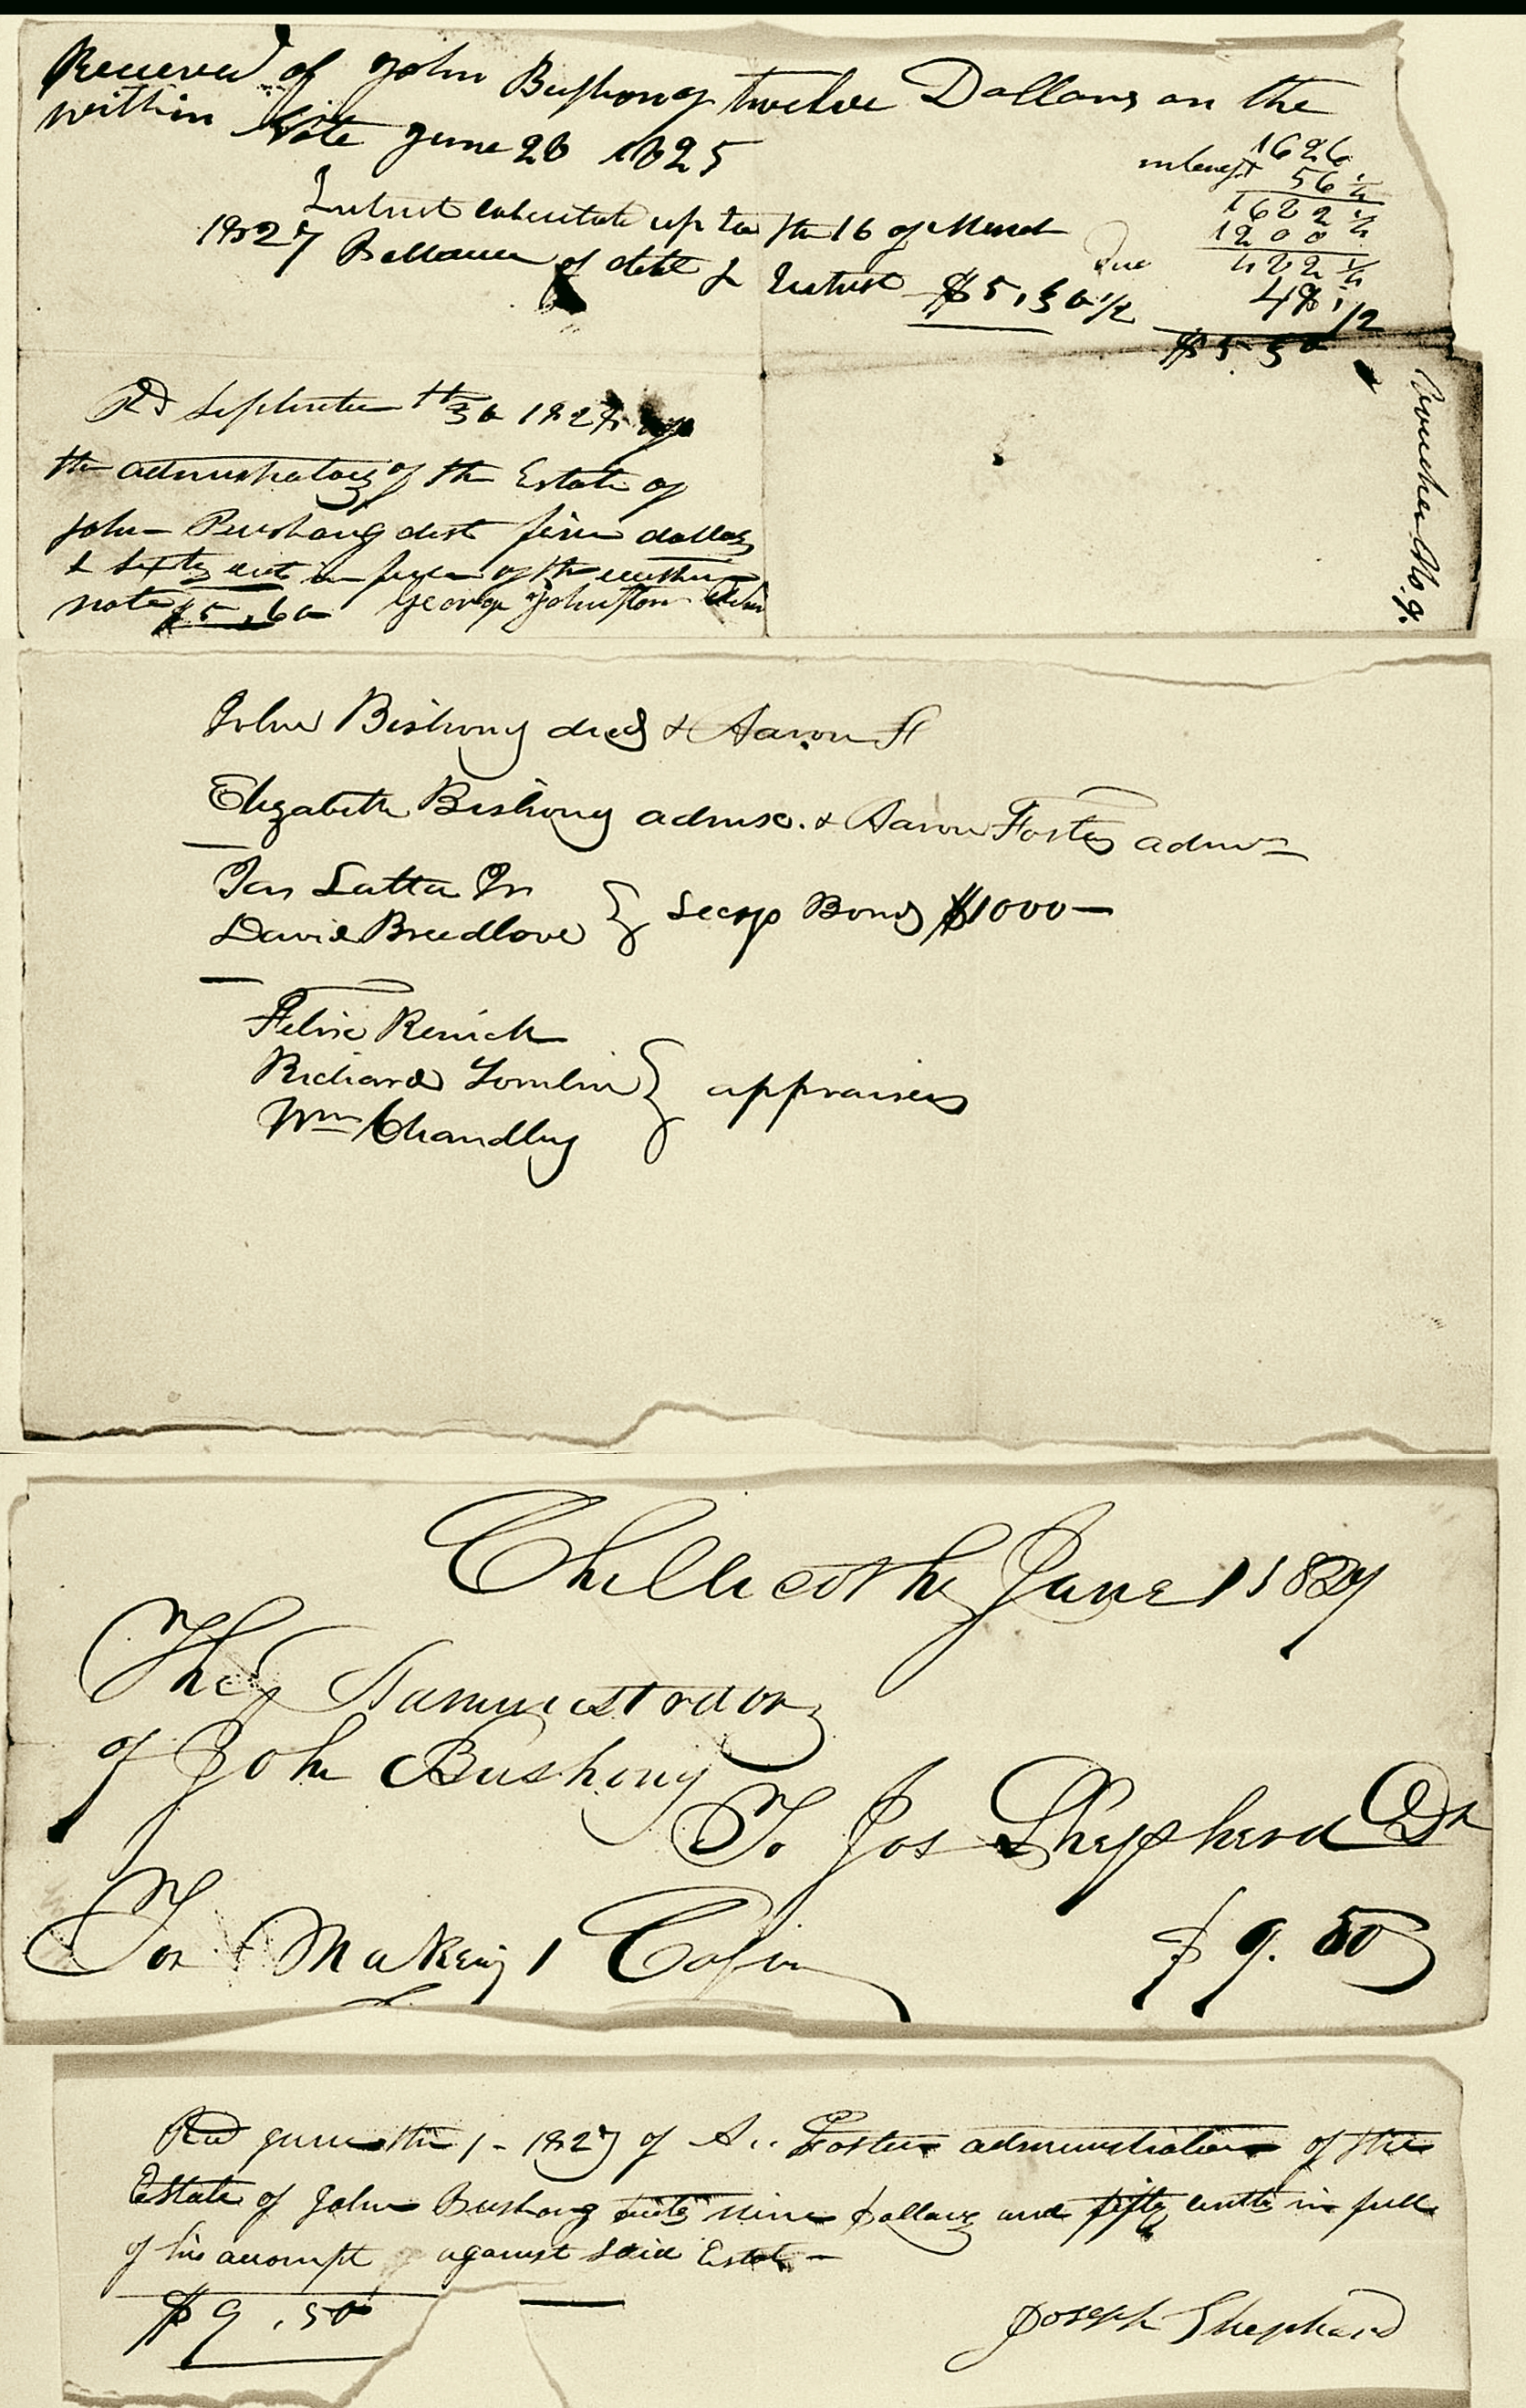 Received of John Bushong twelve Dollars on the
within Note June 20 1825
Intrust calculate up to the 16 of March
1827 Ballance of debt & Intrust $5,30 1/2
1626
interest 56 1/2
1682 1/2
1200
Due 482 1/2
48 1/2
$5 30
Voucher No. 9.
Rd September th 30 1827 of
the administratorz of the Estate of
John Bushong dest five dollars
& sixty cents in full of the within
note $5,60 George Johnston
John Bishong decd & Aaron F
Elizabeth Bishong admx. & Aaron Foster admr
Jas Latta Jr
David Breedlove } Secys Bond $1000—
Felix Renick
Richard Tomlin } appraisers
Wm Chandley
Chillicothe June 1 1827
The Aamimistrator
of John Bushong
To Jos Shepherd Dr
For Making 1 Cofin $9.50
Rcd June the 1 - 1827 of A.. Foster administrator of the
Estate of John Bushong nine dollars and fifty cents in full
of his accompt against said Estate —
$9,50
Joseph Shepherd